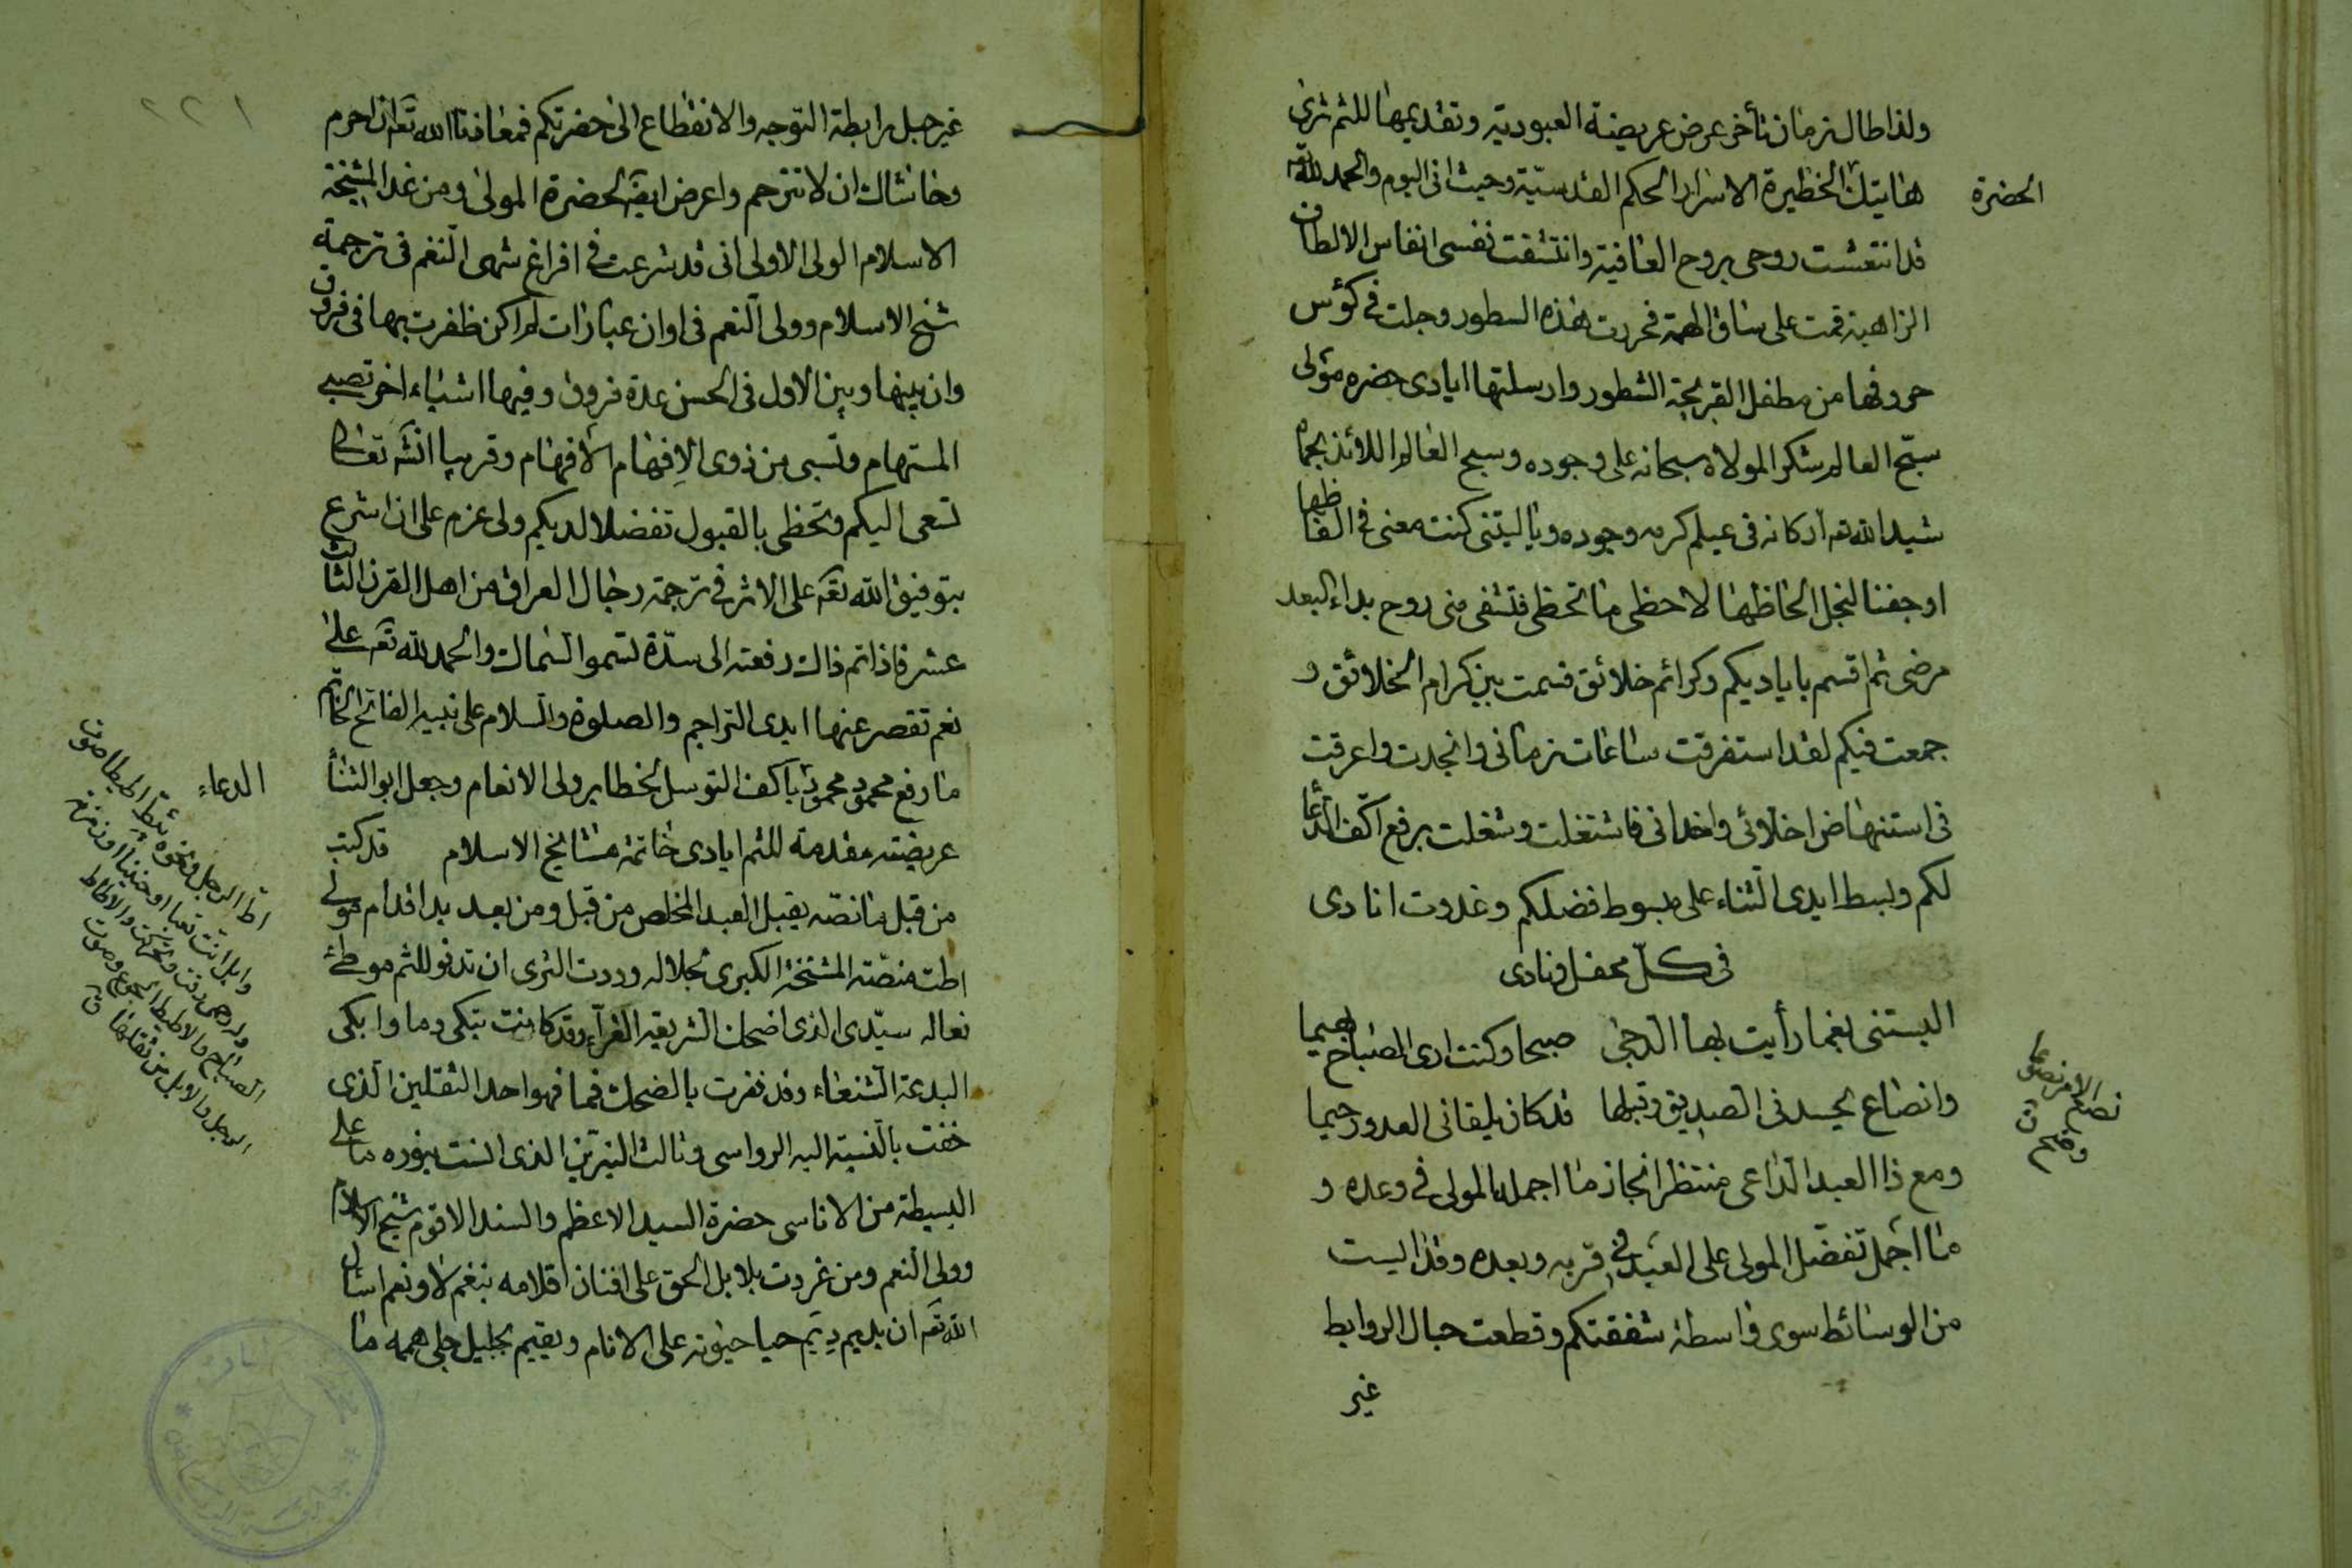 ولذا طال زمان تأخر عرض عريضة العبودية وتقديمها للثم ثرى
هاتيك الخظيرة الاسرار الحكم القدسية وحيث انى اليوم والحمد لله
الحضرة
قد انتعشت روحى بروح العافية وانتشقت نفسى انفاس الالطاف
الزاهية قمت على ساق الهمة فحررت هذه السطور وجلت فى كؤس
حروفها من مطفل القريحة الشطور وارسلتها ايادى حضره مولى
سبّح العالم شكرا لمولاه سبحانه على وجوده وسبح العالم اللائذ بحماه
شيد الله تعه اركانه فى عيلم كرمه وجوده ويا ليتنى كنت معنى فى الفاظها
او جفنا لنجل الحاظها لاحظى ما تحظى فتشفى منى روح بداء البعد
مرضى ثم اقسم باياديكم وكرائم خلائق قسمت بين كرام الخلائق و
جمعت فيكم لقد استغرقت ساعات زمانى وانجدت واعرقت
فى استنهاض اخلائى واخدانى فاشتغلت وشغلت برفع اكف الدعا
لكم وبسط ايدى الثناء على مبسوط فضلكم وغدوت انادى
فى كل محفل ونادى
البستنى نعما رأيت بها الدجى صبحا وكنت ارى الصباح بهيما
وانصاع يحسدنى الصديق وقبلها قد كان يلقانى العدو رحيما
ومع ذا العبد الداعى منتظر انجاز ما اجمله المولى فى وعده و
ما اجمل تفضل المولى على العبد فى قربه وبعده وقد ايست
من الوسائط سوى واسطة شفقتكم وقطعت حبال الروابط
غير
غير حبل رابطة التوجه والانقطاع الى حضرتكم فمعاذنا الله تعه ان احرم
وحاشاك ان لا تترحم واعرض ايضا لحضرة المولى ومن غدا لمشيخة
الاسلام الولى الاولى انى قد شرعت فى افراغ شهى النغم فى ترجمة
شيخ الاسلام وولى النعم فى اوان عبارات لم اكن ظفرت بها فى فروق
وان بينها وبين الاول فى الحسن عدة فروق وفيها اشياء اخر تصبى
المستهام وتسبى من ذوى الافهام الافهام وقريبا انشه تعالى
تسعى اليكم وتحظى بالقبول تفضلا لديكم ولى عزم على ان اشرع
بتوفيق الله تعه على الاثر فى ترجمة رجال العراق من اهل القرن الثالث
عشر فاذا تم ذاك رفعته الى سدّة تسمو السماك والحمد لله تعه على
نعم تقصر عنها ايدى التراجم والصلوة والسلام على نبيه الفاتح الخاتم
ما رفع محمود محمود باكف التوسل لخطاير ولى الانعام وجعل ابو الثنأ
الدعاء
عريضته مقدمة للثم ايادى خاتمة مشايخ الاسلام قد كتبت
من قبل ما نصّه يقبل العبد المخلص من قبل ومن بعد يد اقدام مولى
اطت منصّته المشيخة الكبرى لجلاله وودت الثرى ان تدنو للثم موطئ
نعاله سيدى الذى اضحك الشريعة الغرآء وقد كانت تبكى دما وابكى
البدعة الشنعاء وقد فغرت بالضحك فما فهو احد الثقلين الذى
خفت بالنسبة اليه الرواسى وثالث النيرين الذى انست بنوره ما على
البسيطة من الاناسى حضرة السيد الاعظم والسند الاقوم شيخ الاسلام
وولى النعم ومن غردت بلابل الحق على افنان اقلامه بنغم لا ونعم اسأل
الله تعه ان يديم ديم حيا حيوته على الانام ويقيم بجليل جلى هممه ما